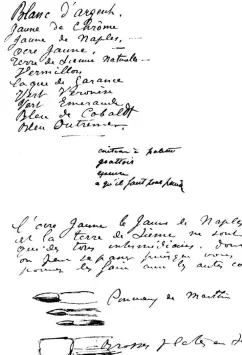 Blanc d'argent.
Jaune de Chrome
Jaune de Naples, —
Ocre Jaune, —
Terre de Sienne Naturelle —
Vermillon
Laque de Garance
Vert Véronèse
Vert Emeraude
Bleu de Cobalt
Bleu Outremer.
couteau à palette
grattoir
essence
ce qu'il faut pour peindre
L'ocre Jaune le Jaune de Naples
et la terre de Sienne ne sont
que des tons intermédiaires. dont
on peut se passer puisque vous
pouvez les faire avec les autres
Pinceaux de Martre
Brosses plates en